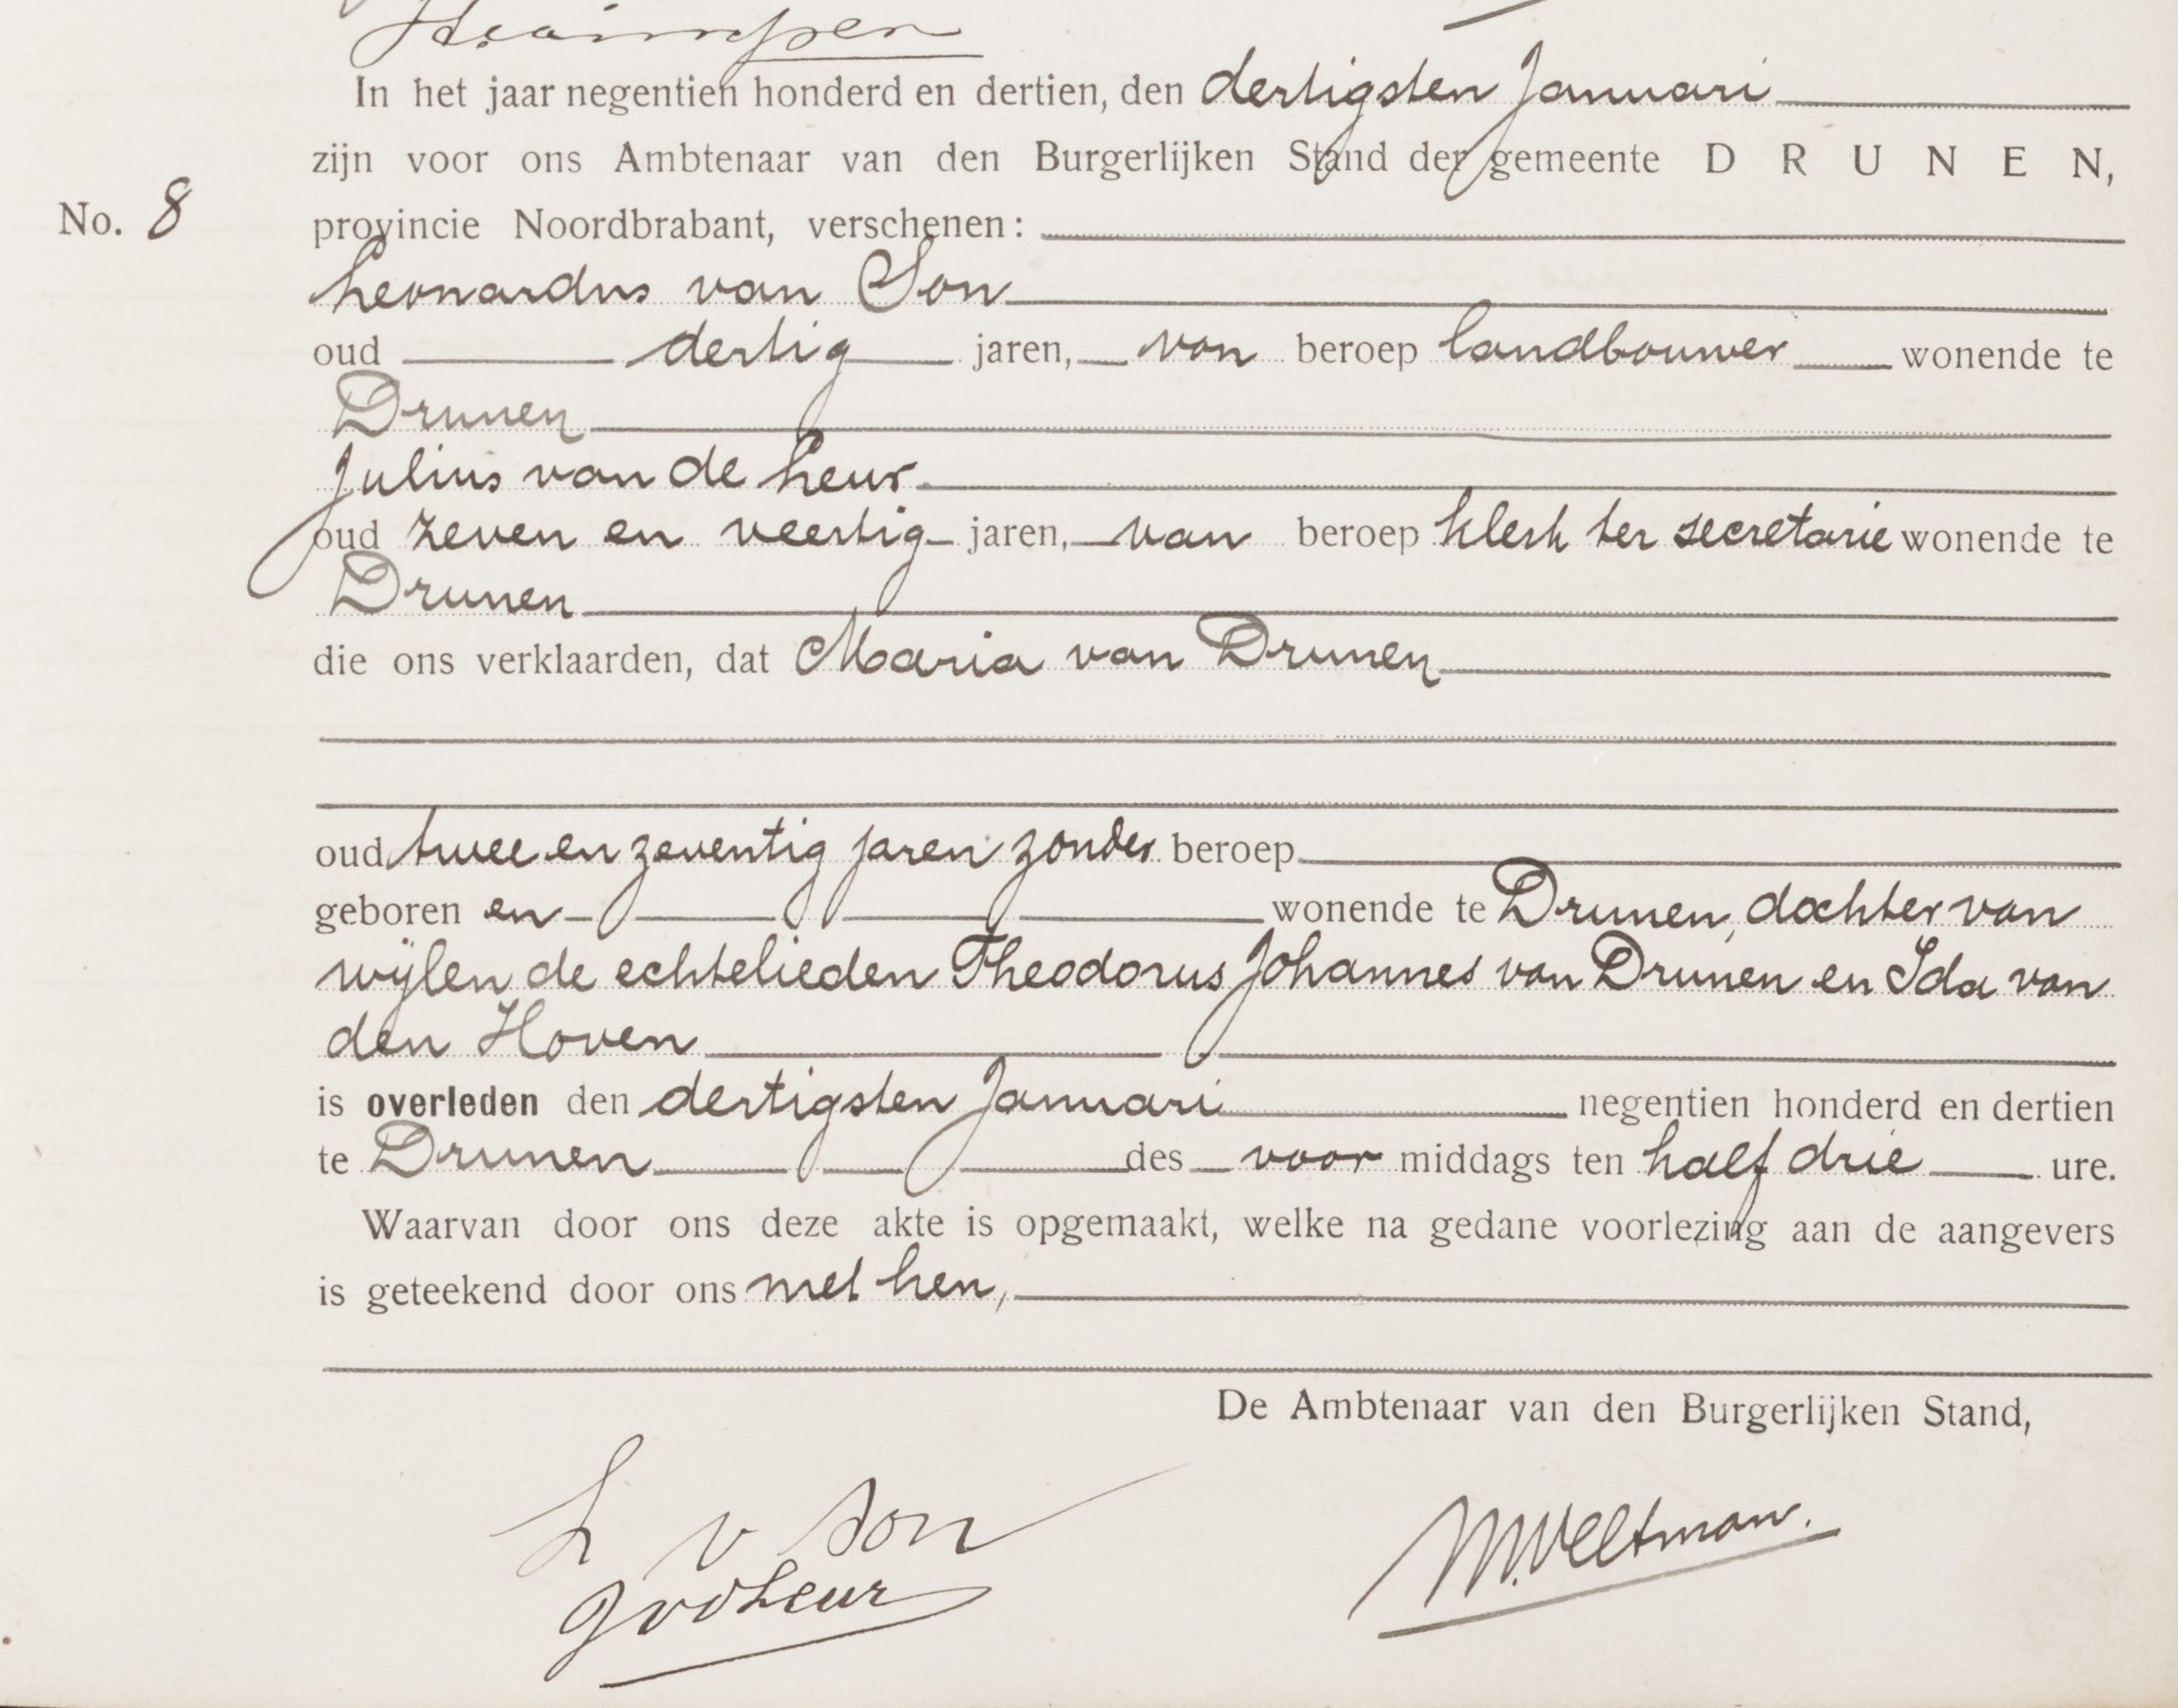 In het jaar negentien honderd en dertien, den dertigsten Januari
zijn voor ons Ambtenaar van den Burgerlijken Stand der gemeente DRUNEN,
No. 8
provincie Noordbrabant, verschenen:
Leonardus van Son
oud dertig jaren, van beroep landbouwer wonende te
Drunen
Julius van de Leur
oud zeven en veertig jaren, van beroep klerk ter secretarie wonende te
Drunen
die ons verklaarden, dat Maria van Drunen
oud twee en zeventig jaren zonder beroep
geboren en wonende te Drunen, dochter van
wijlen de echtelieden Theodorus Johannes van Drunen en Ida van
den Hoven
is overleden den dertigsten Januari negentien honderd en dertien
te Drunen des voor middags ten half drie ure.
Waarvan door ons deze akte is opgemaakt, welke na gedane voorlezing aan de aangevers
is geteekend door ons met hen,
De Ambtenaar van den Burgerlijken Stand,
L v Son
JvdLeur
M. Veltman.